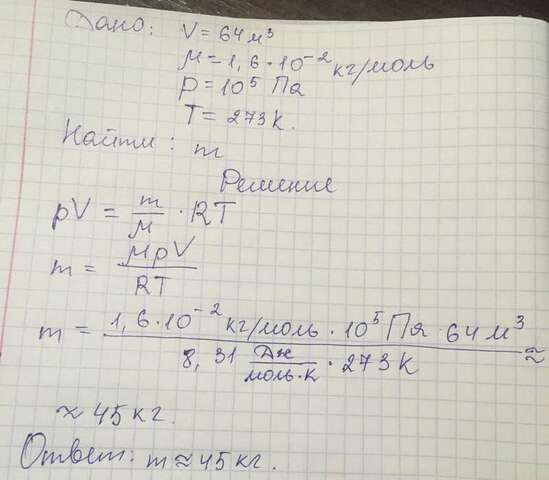 Дано: V = 64 м³
μ = 1,6 · 10⁻² кг/моль
p = 10⁵ Па
T = 273 К.
Найти: m
Решение
pV = m/μ · RT
m = μpV/RT
m = 1,6 · 10⁻² кг/моль · 10⁵ Па · 64 м³ / 8,31 Дж/моль·К · 273 К ≈
≈ 45 кг.
Ответ: m ≈ 45 кг.